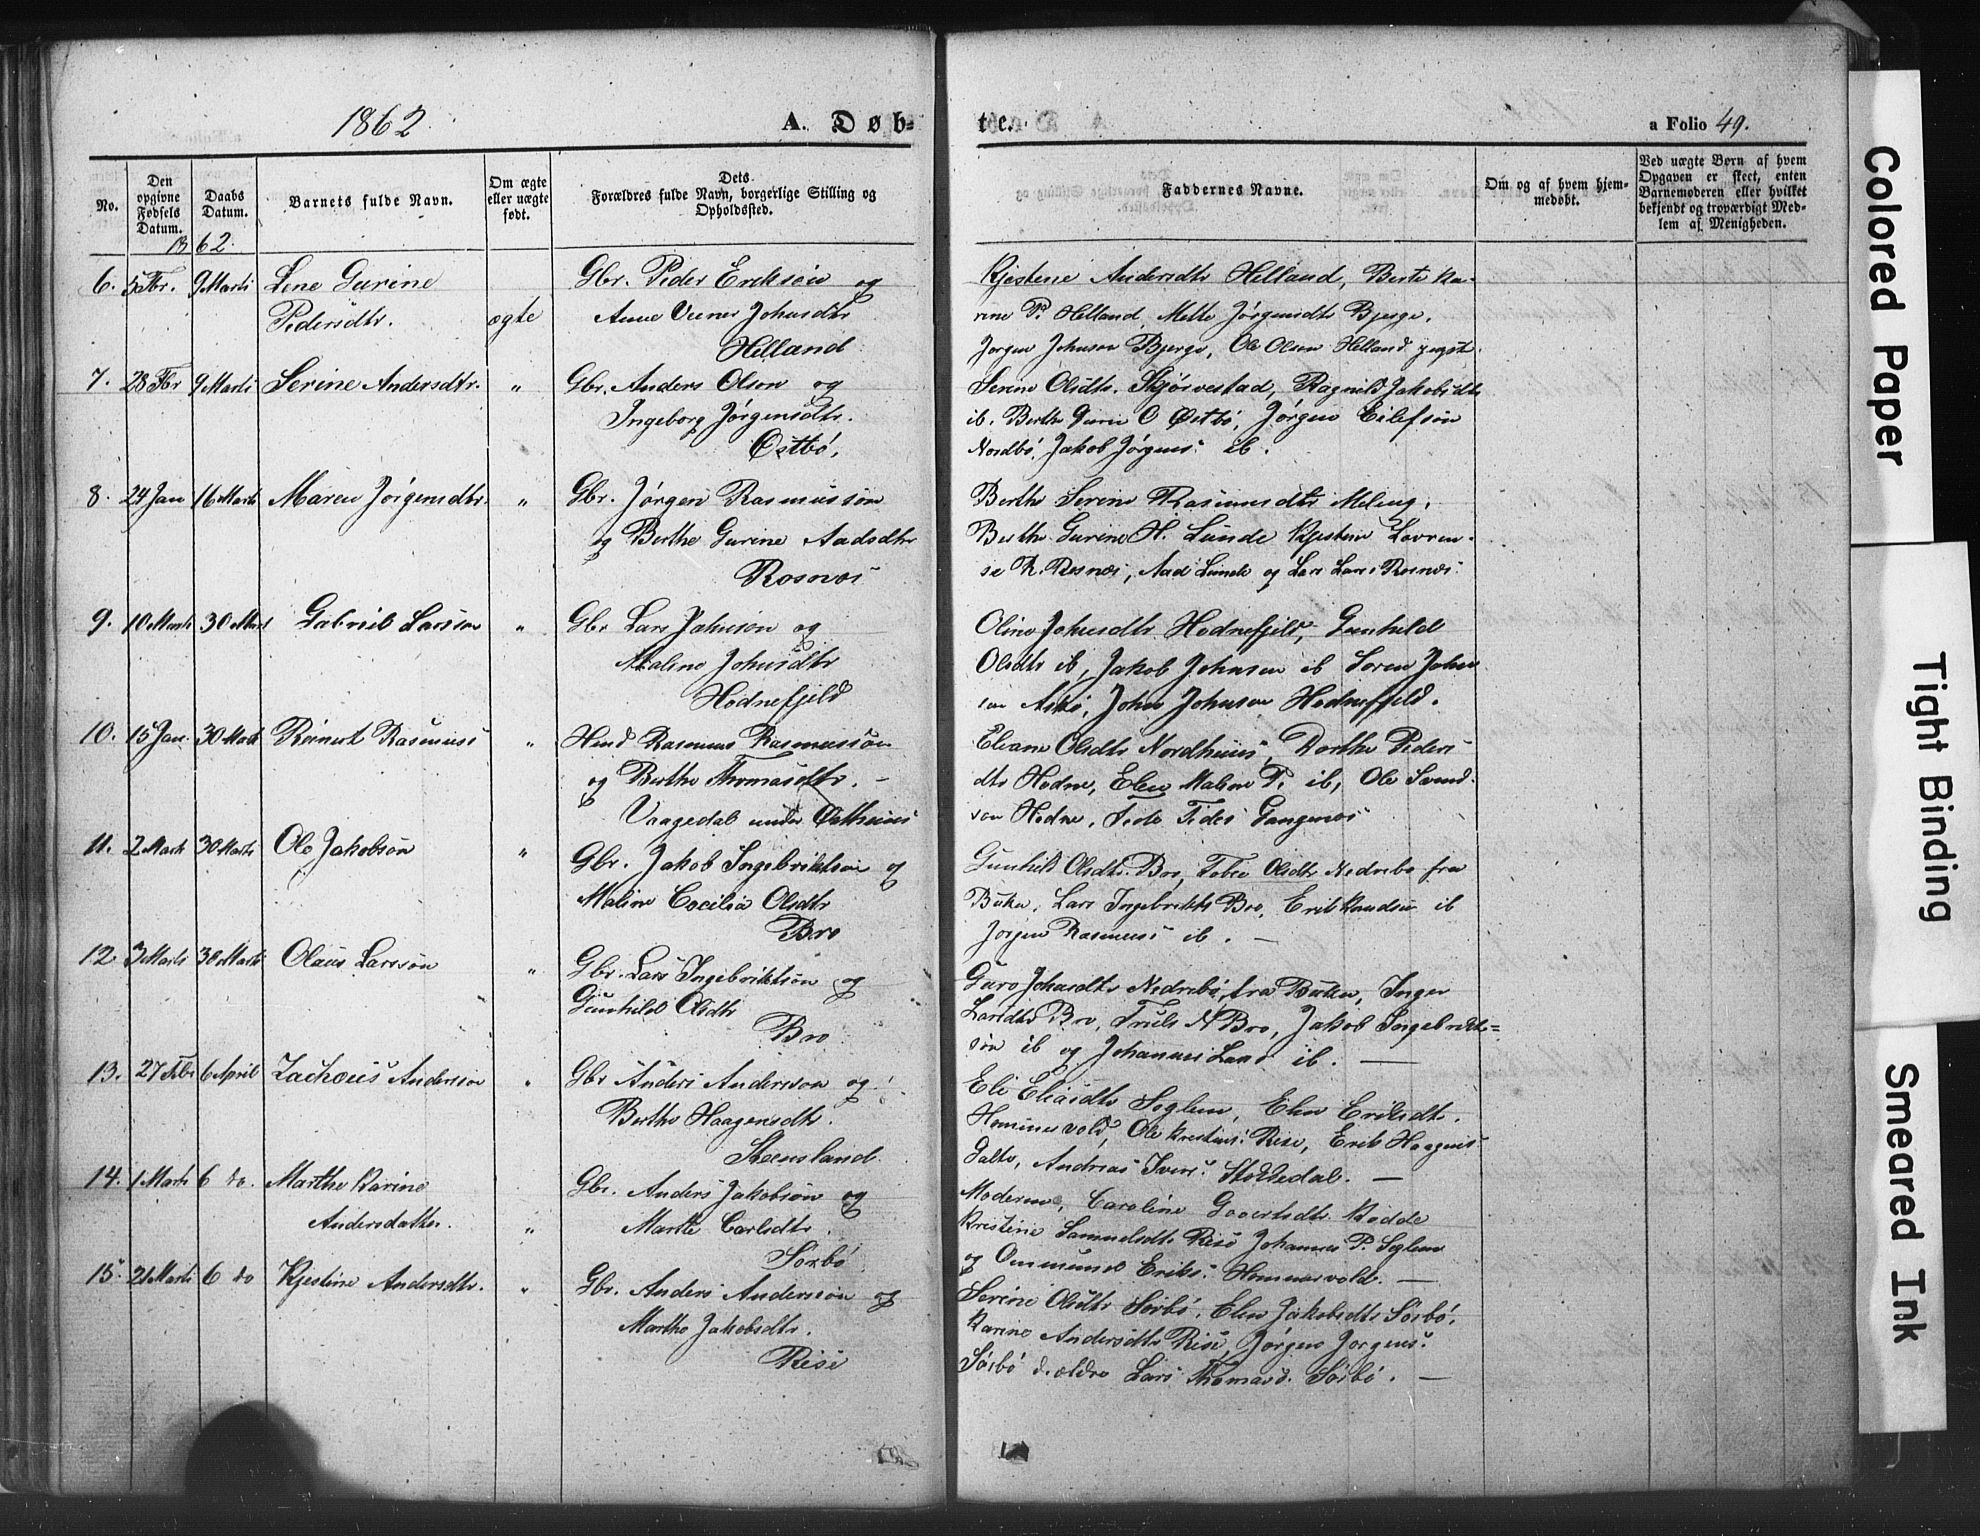 1862 A. Døb=
te. a Folio 49.
No.
Den opgivne Fødsels Datum.
Daabs Datum.
Barnets fulde Navn.
Om ægte eller uægte født.
Dets Forældres fulde Navn, borgerlige Stilling og Opholdssted.
Faddernes Navne.
Om og af hvem hjemmedøbt.
Ved uægte Børn af hvem
Opgaven er skeet, enten
Barnemoderen eller hvilket
bekjendt og troværdigt Med-
lem af Menigheden.
1862.
6. 5 Fbr. 9 Marts Lene Gurine Gbr. Peder Erikson og
Pedersdtr. ægte Anne Johnsdtr
Helland
Kjestene Andersdtr Helland, Berte Ka-
rine P. Helland, Mette Jørgensdtr Bjerge,
Jørgen Johnson Bjerge, Ole Olson Helland
7. 28 Fbr 9 Marts Serine Andersdtr. " Gbr. Anders Olson og
Ingeborg Jørgensdtr.
Østbø,
Serine Olsdtr. Skjørvestad, Ragnild Jakobsdtr
ib. Berthe Gurine O Østbø, Jørgen Eilefson
Nordbø, Jakob Jørgens. ib.
8. 24 Jan 16 Marts Maren Jørgensdtr. " Gbr. Jørgen Rasmusson
og Berthe Gurine Aadsdtr
Rosnæs
Berthe Serine Rasmusdtr Meling,
Berthe Gurine H. Lunde Kjestine Lovren-
se R. Rosnæs, Aad Lunde og Lars Lars. Rosnæs
9. 10 Marts 30 Marts Gabriel Larsson " Gbr Lars Johnson og
Maline Johnsdtr
Hodnefjeld
Oline Johnsdtr Hodnefjeld, Gunhild
Olsdtr ib, Jakob Johnsen ib Soren John
son Askø, John Johnson Hodnefjeld.
10. 15 Jan. 30 Marts Reinert Rasmuss " Husd Rasmus Rasmusson
og Berthe Thomasdtr. –
Vaagedal under Østhuus
Eliane Olsdtr Nordhuus, Dorthe Peders
dtr Hodne, Elen Maline P. ib, Ole Svend-
son Hodne, Gangenæs
11. 2 Marts 30 Marts Ole Jakobson " Gbr. Jakob Ingebriktson og
Maline Cecilia Olsdtr
Bro
Gunhild Olsdtr. Bro, Olsdtr Nedrebø fra
Buken, Lars Ingebrikts Bro, Erik Knudsøn ib
Jørgen Rasmuss ib. –
12. 3 Marts 30 Marts Olaus Larsson " Gbr. Lars Ingebriktson og
Gunhild Olsdtr
Bro
Guro Johnsdtr Nedrebø, fra Buken, Inger
Larsdtr Bro, Truls N Bro, Jakob Ingebrikts=
søn ib og Johannes Lars ib. —
13. 27 Fbr 6 April Zachæus Anderson " Gbr Anders Andersson og
Berthe Haagensdtr.
Steensland
Eli Eliasdtr Seglem, Elen Eriksdtr.
Hommersvold, Ole Kristens. Reise, Erik Haagens
Galte, Andreas Ivers. —
14. 1 Marts 6 do. Marthe Karine Gbr. Anders Jakobson og
Andersdatter. " Marthe Carlsdtr.
Sørbø
Moderen, Caroline Goertsdtr. Kodde
Kristine Samuelsdtr Reise Johannes P. Seglem
og Ommund Eriks. Hommersvold. —
15. 21 Marts 6 do Kjestine Andersdtr. " Gbr. Anders Andersson og
Marthe Jakobsdtr.
Reise
Serine Olsdtr Sørbø, Elen Jakobsdtr Sørbø,
Karine Andersdtr Reise, Jørgen Jørgens.
Sørbø d. ældre Lars Thomasd. Sørbø. —
Colored Paper
Tight Binding
Smeared Ink